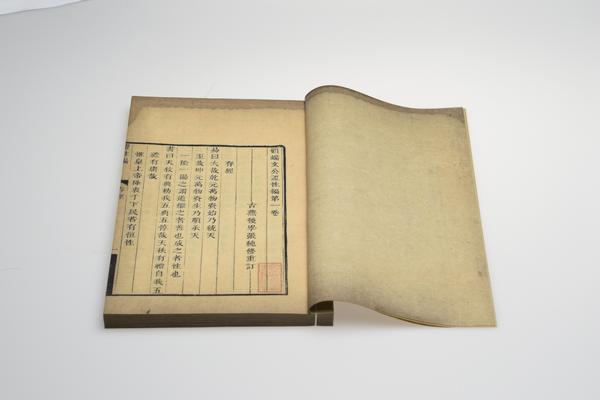 顧端文公證性編第一卷
古燕後學張純修重訂
存經
易曰大哉乾元萬物資始乃統天
至哉坤元萬物資生乃順承天
一陰一陽之謂道繼之者善也成之者性也
書曰天敘有典勅我五典五惇哉天秩有禮自我五
禮有庸哉
惟皇上帝降衷于下民若有恒性